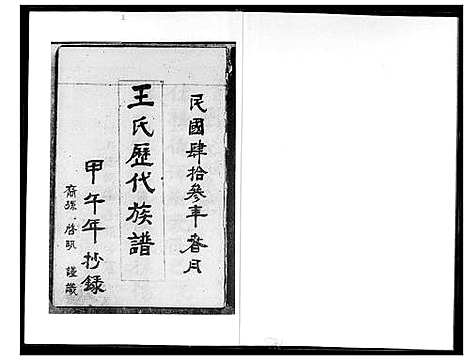 民國肆拾參年春月
王氏歷代族譜
甲午年抄錄
裔孫 啓 謹識